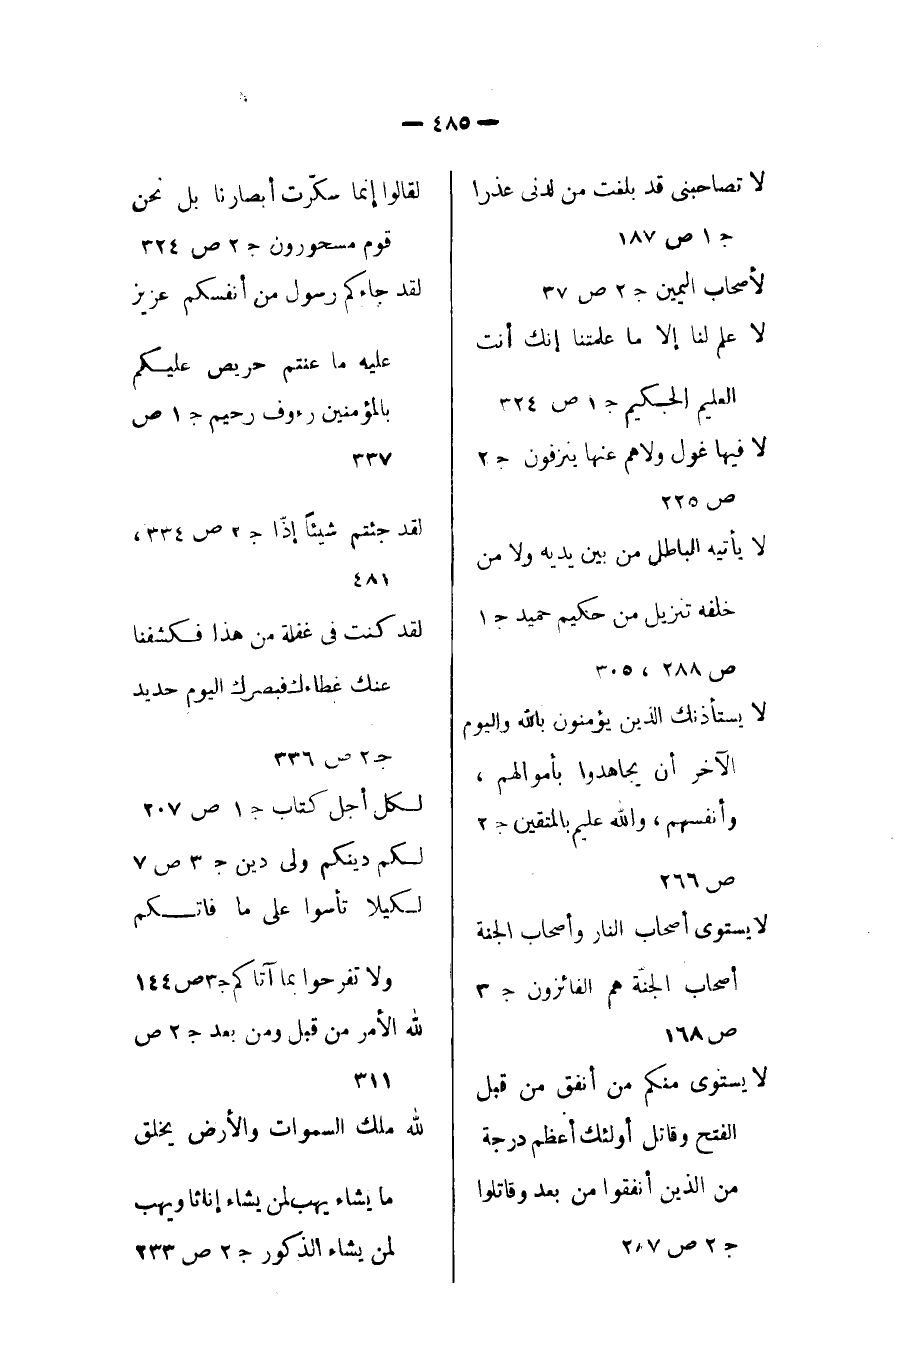 — ٤٨٥ —
لا تصاحبنى قد بلغت من لدنى عذرا
ج ١ ص ١٨٧
لأصحاب اليمين ج ٢ ص ٣٧
لا علم لنا إلا ما علمتنا إنك أنت
العليم الحكيم ج ١ ص ٣٢٤
لا فيها غول ولاهم عنها ينزفون ج ٢
ص ٢٢٥
لا يأتيه الباطل من بين يديه ولا من
خلفه تنزيل من حكيم حميد ج ١
ص ٢٨٨ ، ٣٠٥
لا يستأذنك الذين يؤمنون بالله واليوم
الآخر أن يجاهدوا بأموالهم ،
وأنفسهم ، والله عليم بالمتقين ج ٢
ص ٢٦٦
لا يستوى أصحاب النار وأصحاب الجنة
أصحاب الجنّة هم الفائزون ج ٣
ص ١٦٨
لا يستوى منكم من أنفق من قبل
الفتح وقاتل أولئك أعظم درجة
من الذين أنفقوا من بعد وقاتلوا
ج ٢ ص ٢٠٧
لقالوا إنما سكّرت أبصارنا بل نحن
قوم مسحورون ج ٢ ص ٣٢٤
لقد جاءكم رسول من أنفسكم عزيز
عليه ما عنتم حريص عليكم
بالمؤمنين رءوف رحيم ج ١ ص
٣٣٧
لقد جئتم شيئاً إذّا ج ٢ ص ٣٣٤ ،
٤٨١
لقد كنت فى غفلة من هذا فكشفنا
عنك غطاءك فبصرك اليوم حديد
ج ٢ ص ٣٣٦
لكل أجل كتاب ج ١ ص ٢٠٧
لكم دينكم ولى دين ج ٣ ص ٧
لكيلا تأسوا على ما فاتكم
ولا تفرحوا بما آتاكم ج ٣ ص ١٤٤
لله الأمر من قبل ومن بعد ج ٢ ص
٣١١
لله ملك السموات والأرض يخلق
ما يشاء يهب لمن يشاء إناثا ويهب
لمن يشاء الذكور ج ٢ ص ٢٣٣